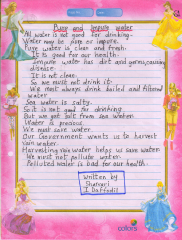 Pure and Impure water
All water is not good for drinking.
Water may be pure or impure.
Pure water is clean and fresh.
It is good for our health.
Impure water has dirt and germs, causing
disease.
It is not clean.
So we must not drink it.
We must always drink boiled and filtered
water.
Sea water is salty.
So it is not good for drinking.
But we get salt from sea water.
Water is precious.
We must save water.
Our Government wants us to harvest
rain water.
Harvesting rain water helps us save water.
We must not pollute water.
Polluted water is bad for our health.
Written by
I Daffodil
colors